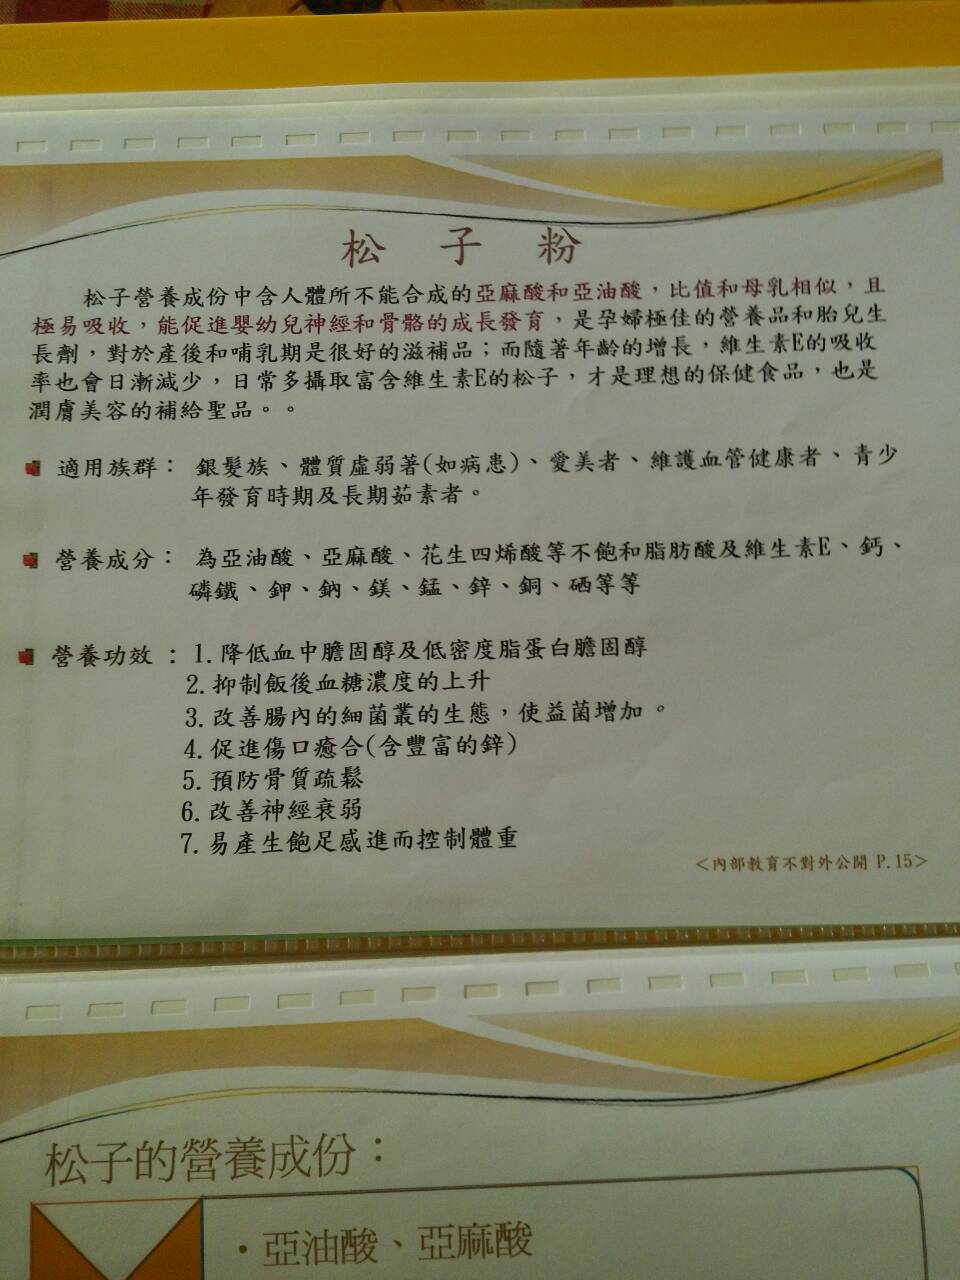 松 子 粉
松子營養成份中含人體所不能合成的亞麻酸和亞油酸，比值和母乳相似，且
極易吸收，能促進嬰幼兒神經和骨骼的成長發育，是孕婦極佳的營養品和胎兒生
長劑，對於產後和哺乳期是很好的滋補品；而隨著年齡的增長，維生素E的吸收
率也會日漸減少，日常多攝取富含維生素E的松子，才是理想的保健食品，也是
潤膚美容的補給聖品。。
適用族群： 銀髮族、體質虛弱著(如病患)、愛美者、維護血管健康者、青少
年發育時期及長期茹素者。
營養成分： 為亞油酸、亞麻酸、花生四烯酸等不飽和脂肪酸及維生素E、鈣、
磷鐵、鉀、鈉、鎂、錳、鋅、銅、硒等等
營養功效 ： 1.降低血中膽固醇及低密度脂蛋白膽固醇
2.抑制飯後血糖濃度的上升
3.改善腸內的細菌叢的生態，使益菌增加。
4.促進傷口癒合(含豐富的鋅)
5.預防骨質疏鬆
6.改善神經衰弱
7.易產生飽足感進而控制體重
<內部教育不對外公開 P.15>
松子的營養成份：
・亞油酸、亞麻酸